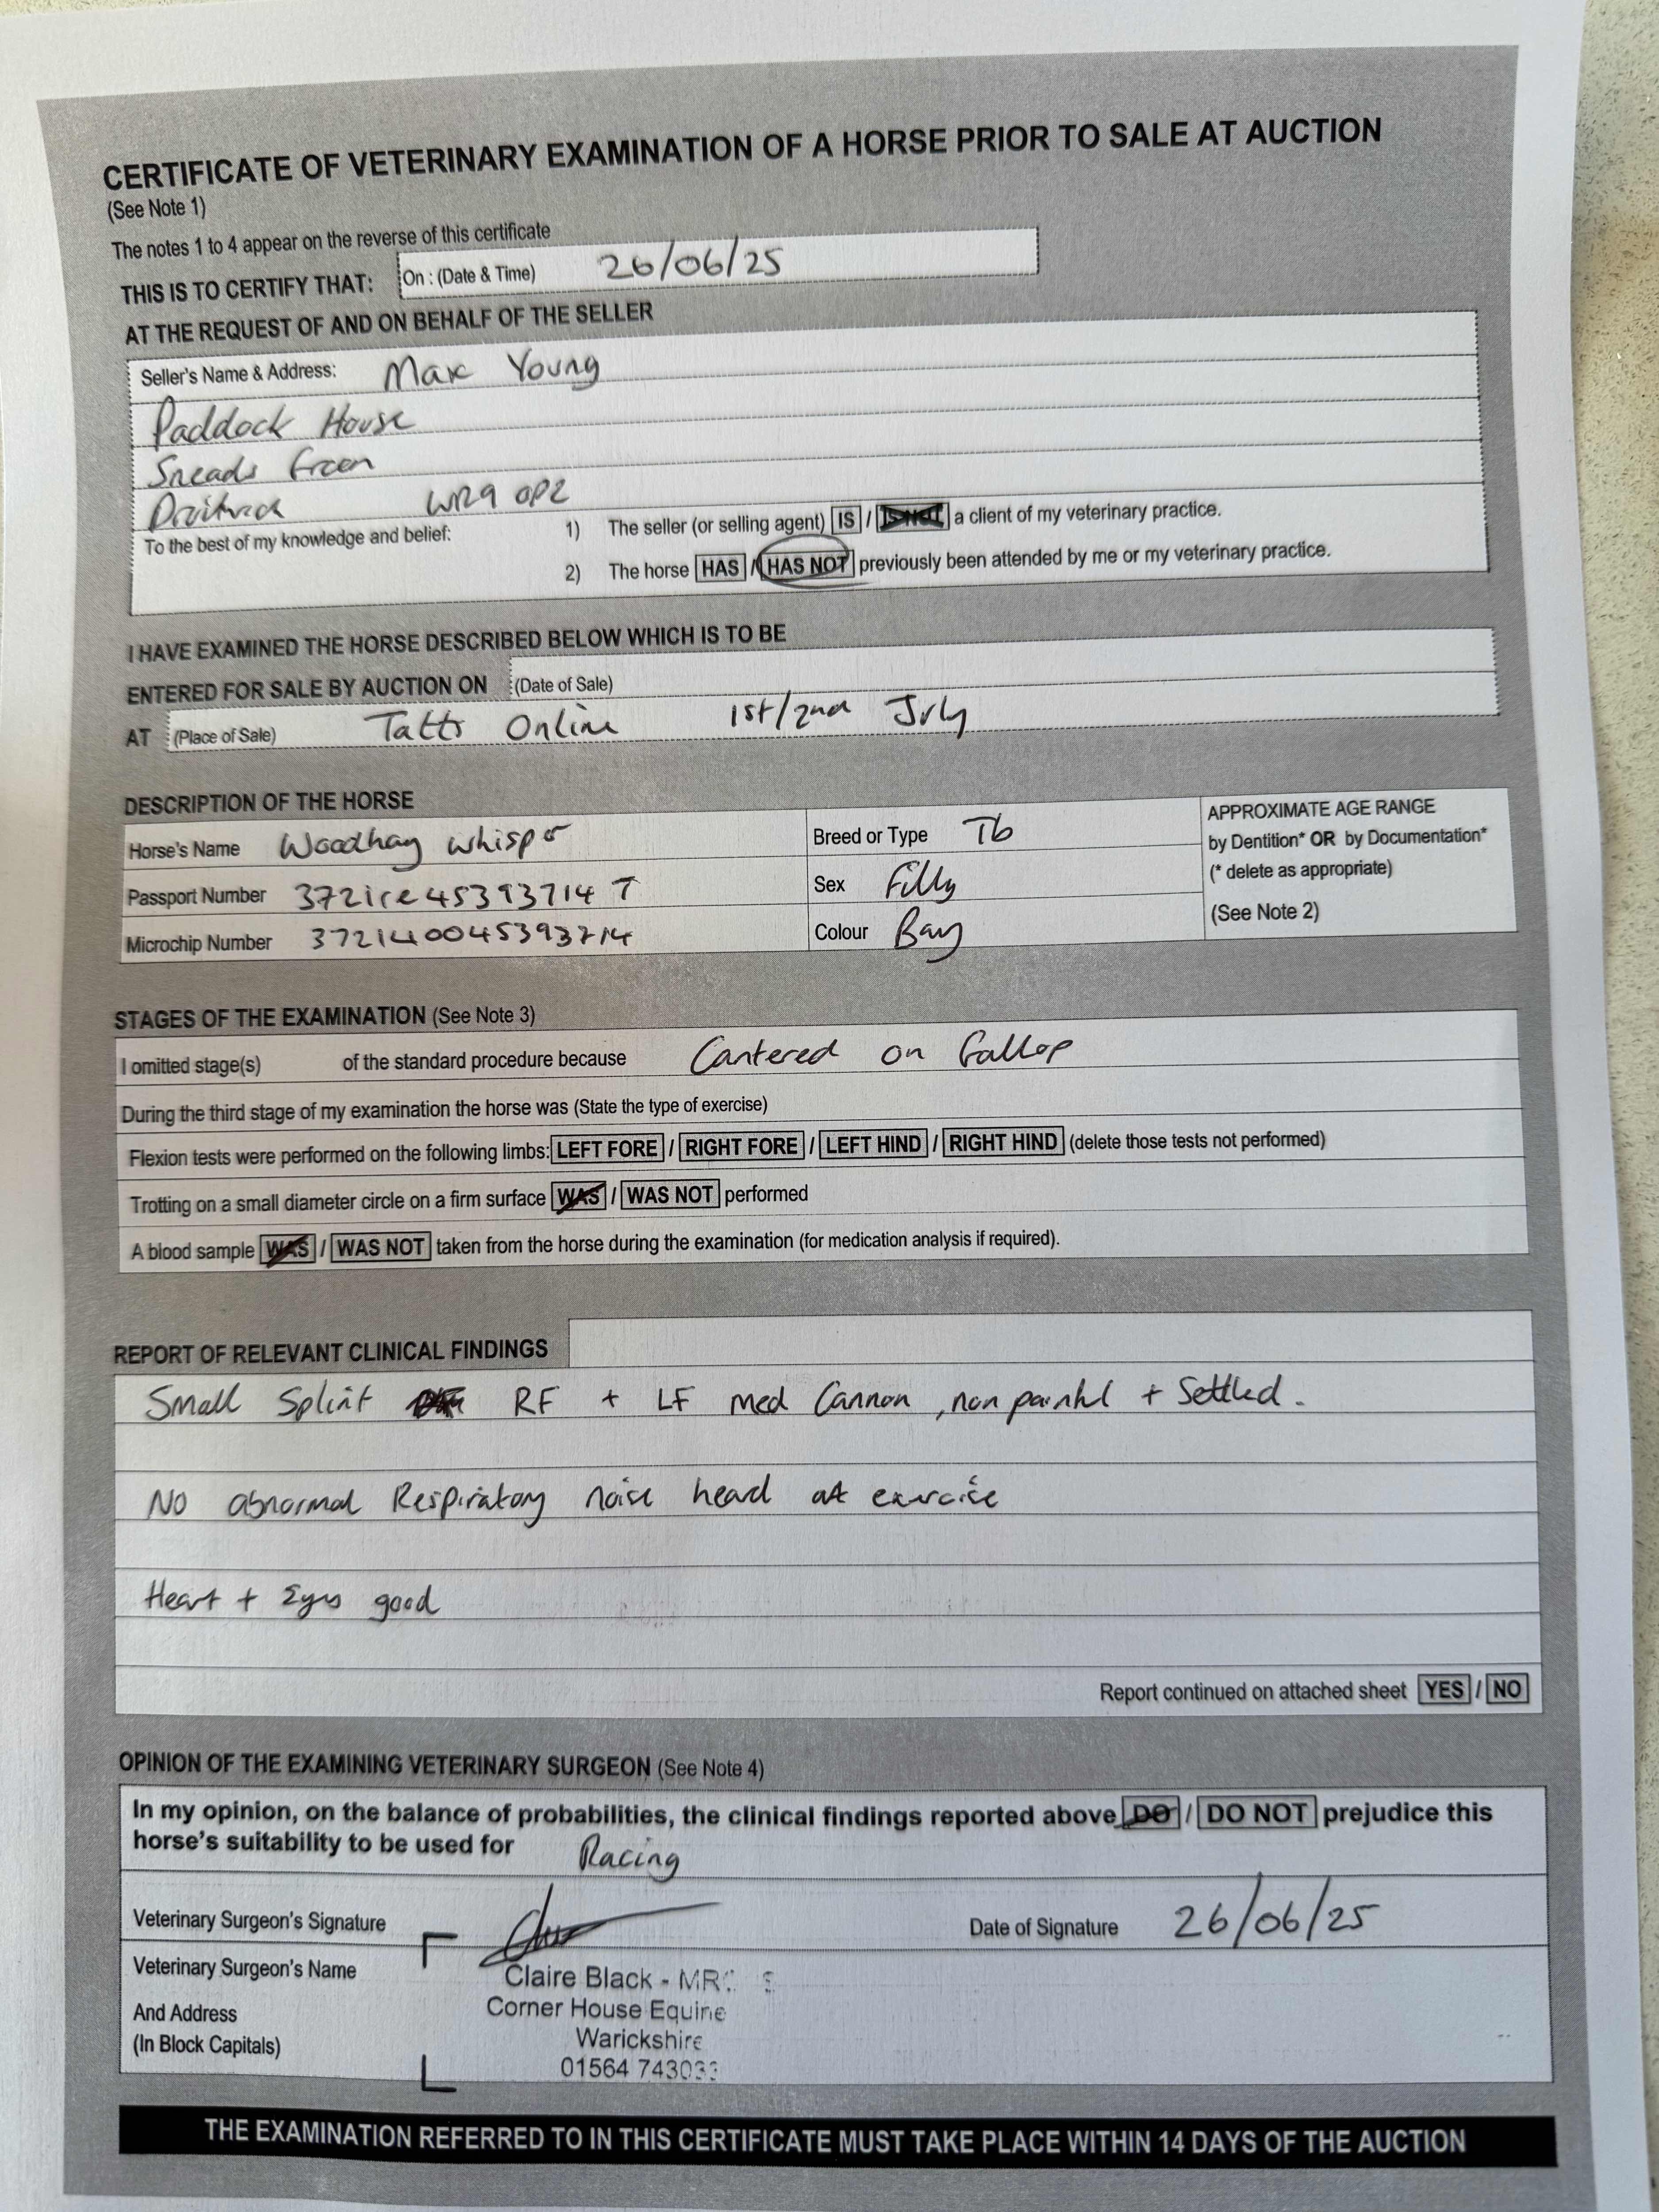 CERTIFICATE OF VETERINARY EXAMINATION OF A HORSE PRIOR TO SALE AT AUCTION
(See Note 1)
The notes 1 to 4 appear on the reverse of this certificate
THIS IS TO CERTIFY THAT: On : (Date & Time) 26/06/25
AT THE REQUEST OF AND ON BEHALF OF THE SELLER
Seller's Name & Address: Max Young
Paddock House
Sneads Green
Droitwich WR9 0PZ
To the best of my knowledge and belief: 1) The seller (or selling agent) IS / IS NOT a client of my veterinary practice.
2) The horse HAS / HAS NOT previously been attended by me or my veterinary practice.
I HAVE EXAMINED THE HORSE DESCRIBED BELOW WHICH IS TO BE
ENTERED FOR SALE BY AUCTION ON (Date of Sale)
AT (Place of Sale) Tatts Online 1st/2nd July
DESCRIPTION OF THE HORSE
Horse's Name Woodhay Whisper
Passport Number 372ire45393714 T
Microchip Number 372140045393714
Breed or Type Tb
Sex Filly
Colour Bay
APPROXIMATE AGE RANGE
by Dentition* OR by Documentation*
(* delete as appropriate)
(See Note 2)
STAGES OF THE EXAMINATION (See Note 3)
I omitted stage(s) of the standard procedure because Cantered on Gallop
During the third stage of my examination the horse was (State the type of exercise)
Flexion tests were performed on the following limbs: LEFT FORE / RIGHT FORE / LEFT HIND / RIGHT HIND (delete those tests not performed)
Trotting on a small diameter circle on a firm surface WAS / WAS NOT performed
A blood sample WAS / WAS NOT taken from the horse during the examination (for medication analysis if required).
REPORT OF RELEVANT CLINICAL FINDINGS
Small Splint RF + LF med Cannon, non painful + Settled.
No abnormal Respiratory noise heard at exercise
Heart + Eyes good
Report continued on attached sheet YES / NO
OPINION OF THE EXAMINING VETERINARY SURGEON (See Note 4)
In my opinion, on the balance of probabilities, the clinical findings reported above DO / DO NOT prejudice this
horse's suitability to be used for Racing
Veterinary Surgeon's Signature
Date of Signature 26/06/25
Veterinary Surgeon's Name
And Address
(In Block Capitals)
Claire Black -
Corner House Equine
Warickshire
01564 743033
THE EXAMINATION REFERRED TO IN THIS CERTIFICATE MUST TAKE PLACE WITHIN 14 DAYS OF THE AUCTION